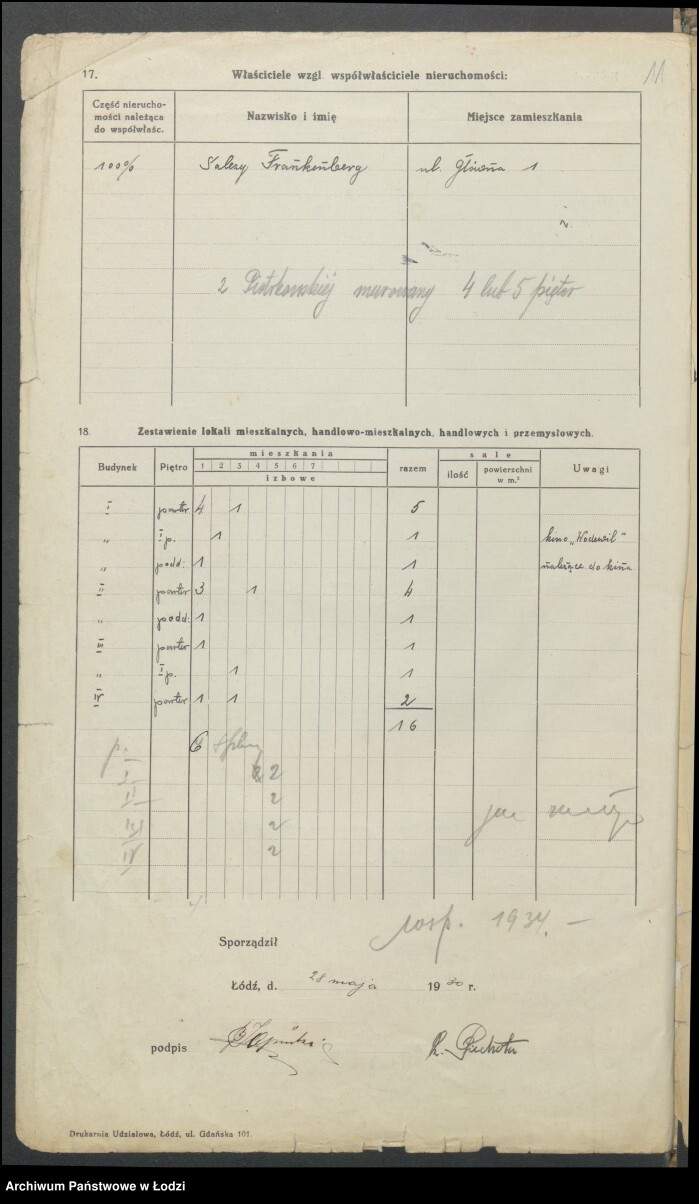 11
17. Właściciele wzgl. współwłaściciele nieruchomości:
Część nierucho-
mości należąca
do współwłaśc.
Nazwisko i imię
Miejsce zamieszkania
100% Salezy Frankenberg ul. Główna 1
2 Piotrkowskiej murowany 4 lub 5 pięter
18. Zestawienie lokali mieszkalnych, handlowo-mieszkalnych, handlowych i przemysłowych.
Budynek Piętro mieszkania razem sale Uwagi
1 2 3 4 5 6 7 ilość powierzchni
w m.²
izbowe
I parter 4 1 5
„ I p. 1 1 kino „Wodewil"
„ podd: 1 1 należące do kina
II parter 3 1 4
„ podd: 1 1
III parter 1 1
„ I p. 1 1
IV parter 1 1 2
16
p. 6
I 2
II 2
III 2
IV 2
rosp. 1934. –
Sporządził
Łódź, d. 28 maja 1930 r.
podpis
Drukarnia Udziałowa, Łódź, ul. Gdańska 101.
Archiwum Państwowe w Łodzi